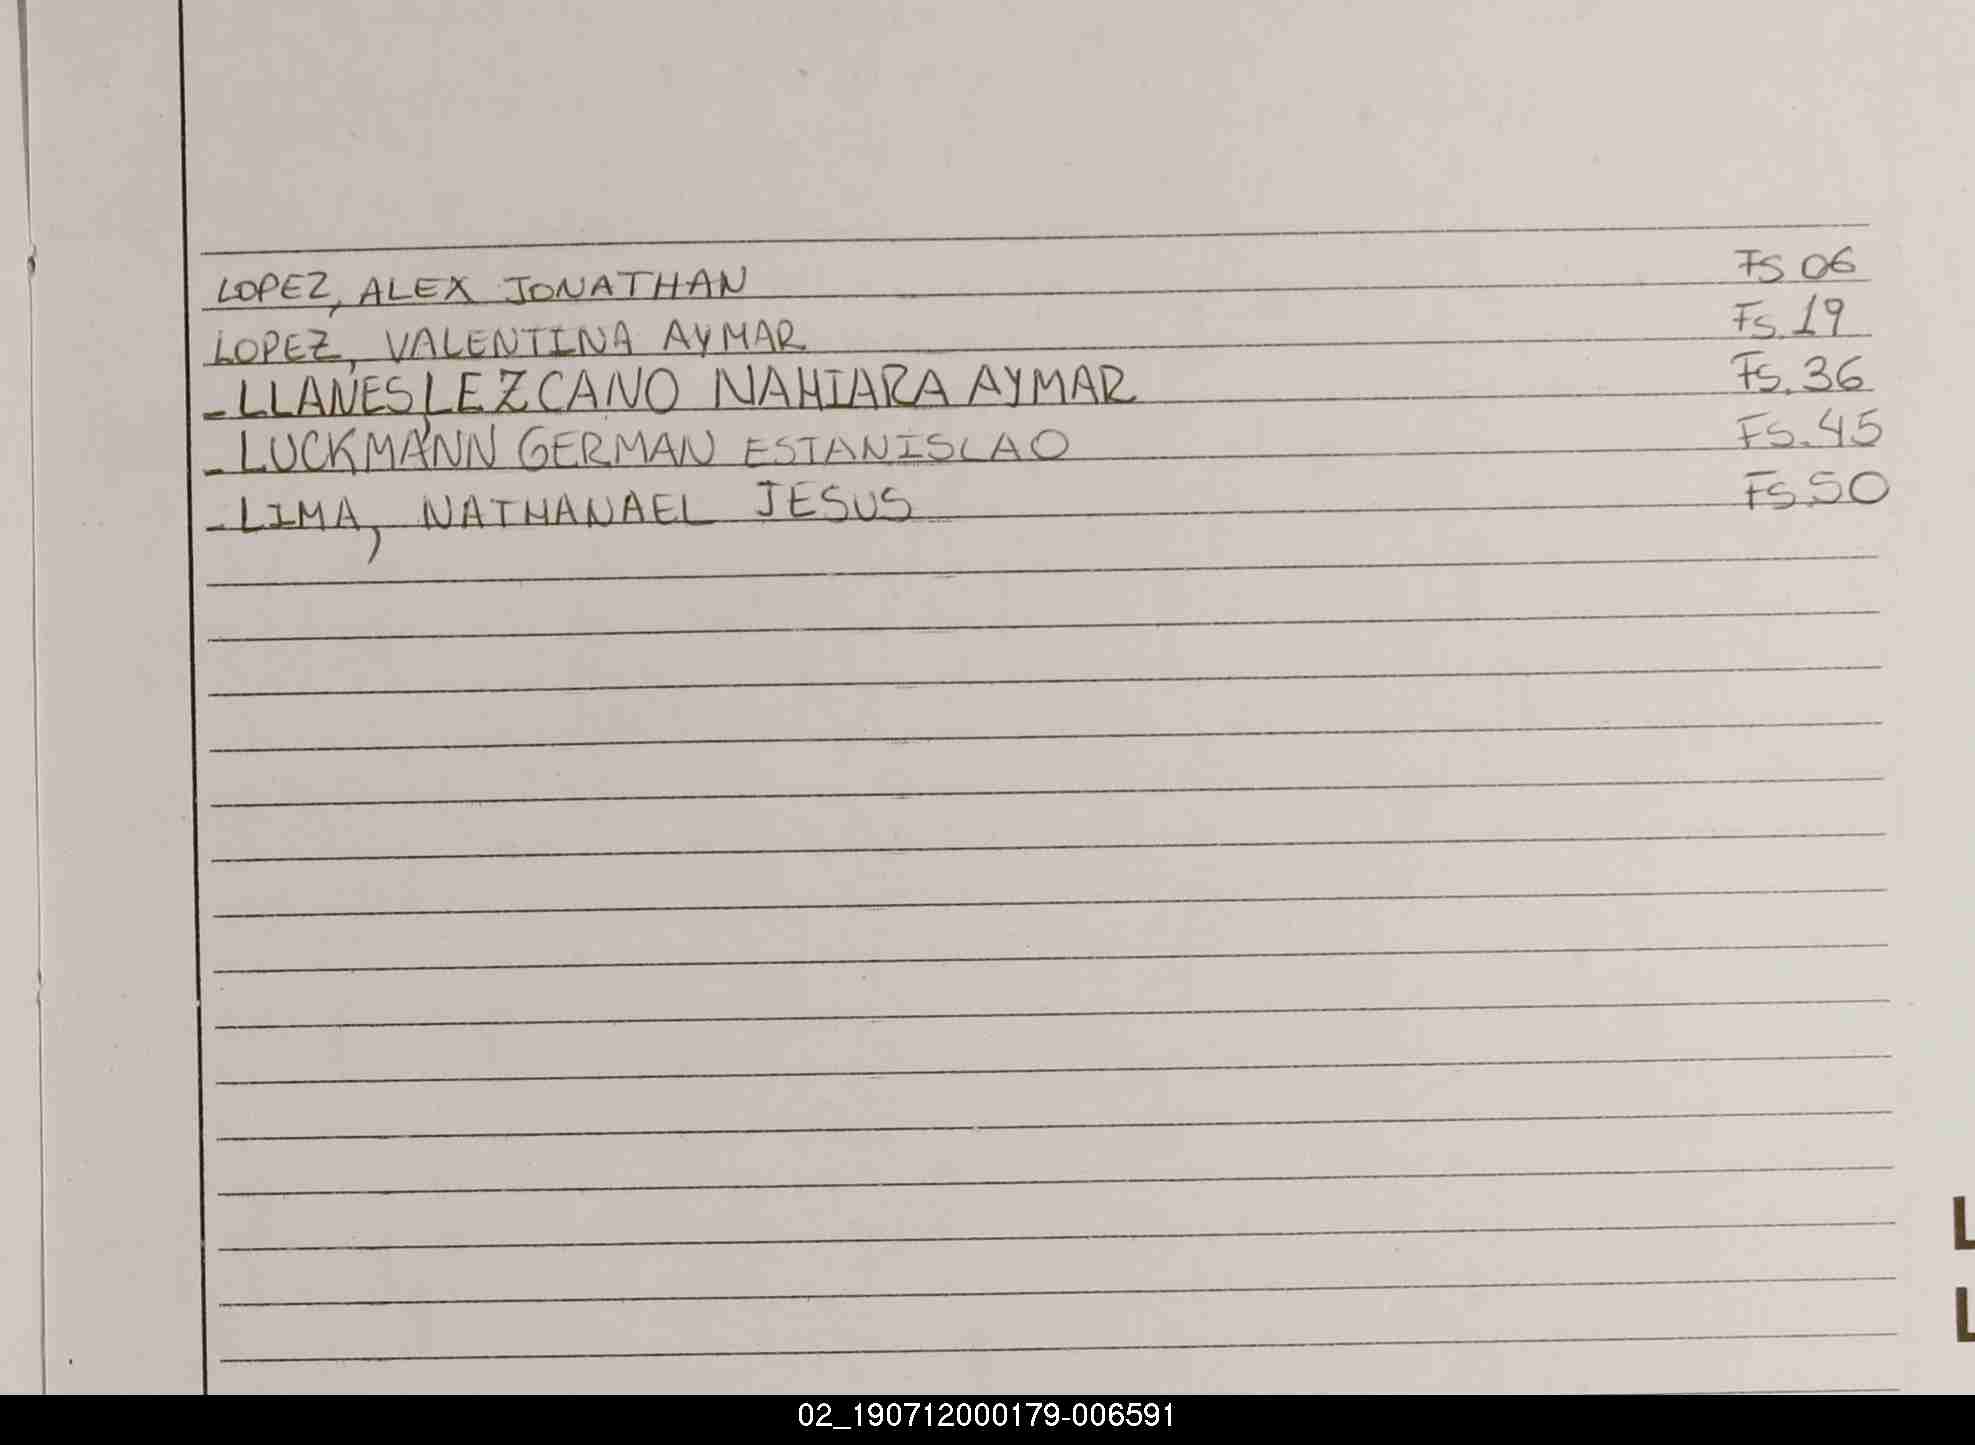 LOPEZ, ALEX JONATHAN FS 06
LOPEZ, VALENTINA AYMAR FS. 19
- LLANES LEZCANO NAHIARA AYMAR FS. 36
- LUCKMANN GERMAN ESTANISLAO FS. 45
- LIMA, NATHANAEL JESUS FS. 50
L
L
02_190712000179-006591